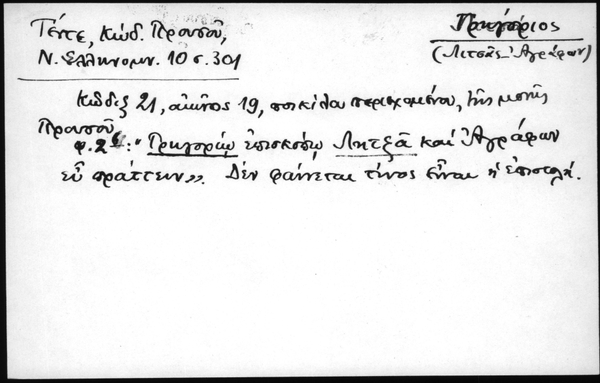 Γρηγόριος
(Λιτσᾶς-Ἀγράφων)
Κώδ. Προυσοῦ,
Ν. Ἑλληνομν. 10 σ. 301
Κῶδιξ 21, αἰῶνος 19, ποικίλου περιεχομένου, τῆς μονῆς
Προυσοῦ
φ. 2: "Γρηγορίῳ ἐπισκόπῳ Λητζᾶ καί Ἀγράφων
εὖ πράττειν». Δέν φαίνεται τίνος εἶναι ἡ ἐπιστολή.